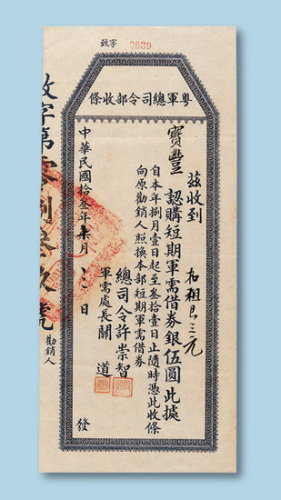 敦字 0839
粵軍總司令部收條
茲收到
寶豐 認購短期軍需借券銀伍圓此據
自本年捌月壹日起至叁拾壹日止隨時憑此收條
向原勸銷人照換本部短期軍需借券
總司令許崇智
軍需處長關道
中華民國拾叁年柒月 日 發
勸銷人
字第零捌叁玖號